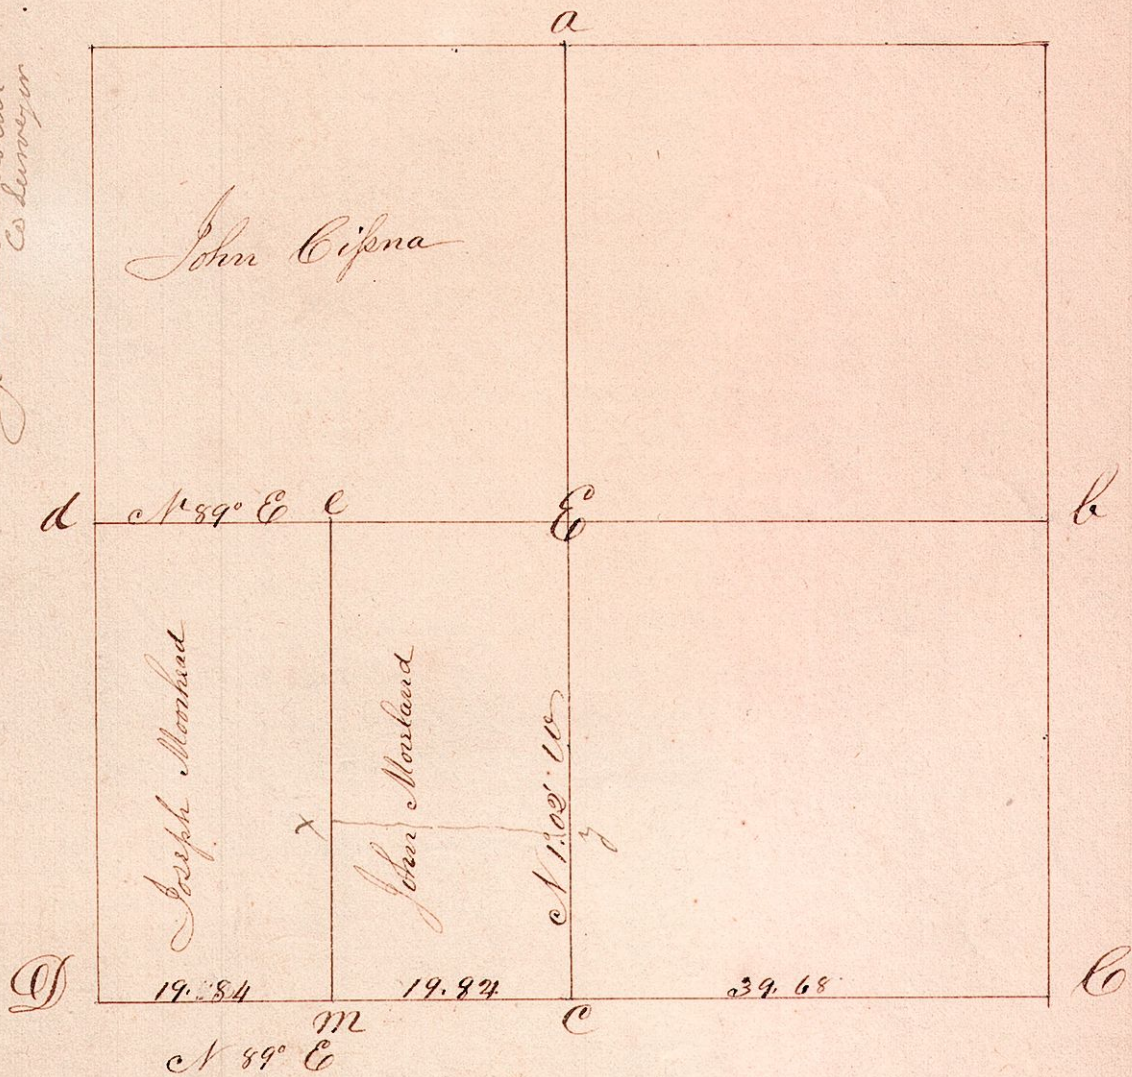 a
Co Surveyor
John Cißna
d
N 89° E
e
E
b
Joseph Moorhead
John Moreland
N 1.02' W
x
y
D
19.84
19.84
39.68
C
m
c
N 89° E